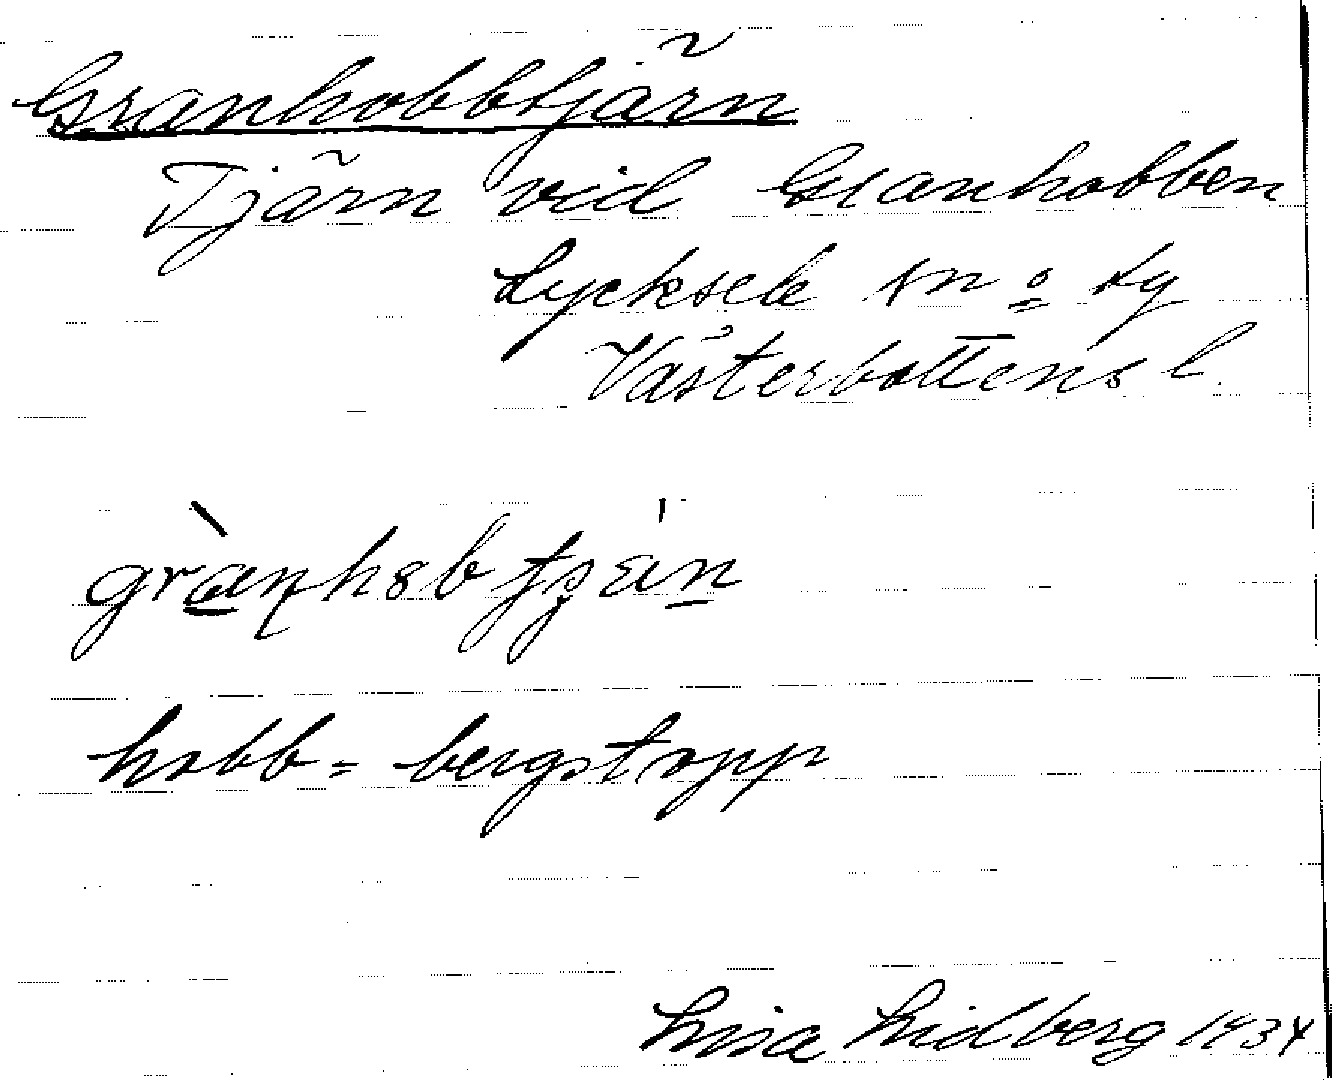 Granhobbtjärn
Tjärn vid Granhobben
Lycksele sn o. Ly
Västerbottens l.
hobb = bergstopp
Lisa Lidberg 1934